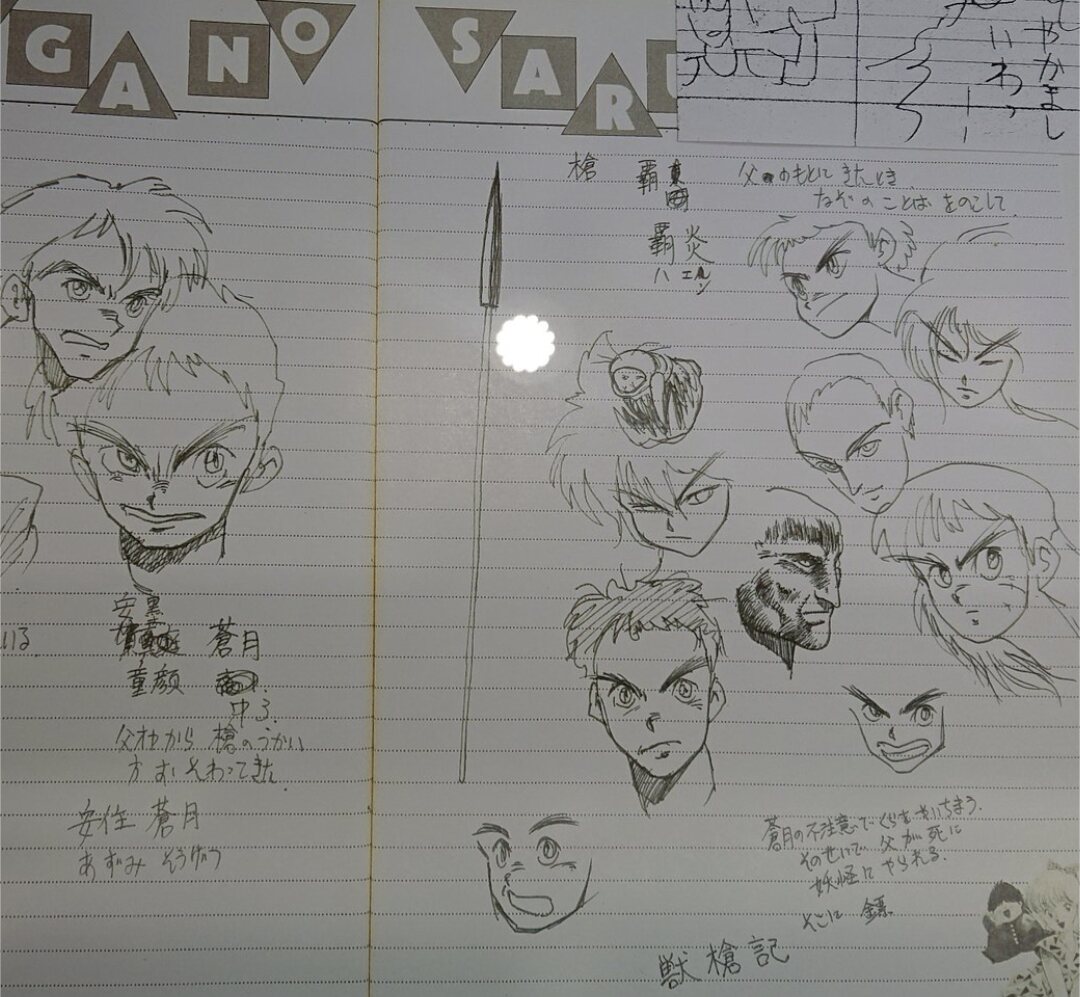 GANO SARU
やかまし
いわっ
槍
覇東
覇炎
ハエン
父のもとにきたとき
なぞのことばをのこして、
いる
安黒
蒼月
童顔
中3.
父オヤから槍のつかい
方おそわってきた
安住 蒼月
あずみ そうげつ
蒼月の不注意でくらをやいちまう.
そのせいで父が死に
妖怪にやられる.
そこに 鏢
獣槍記